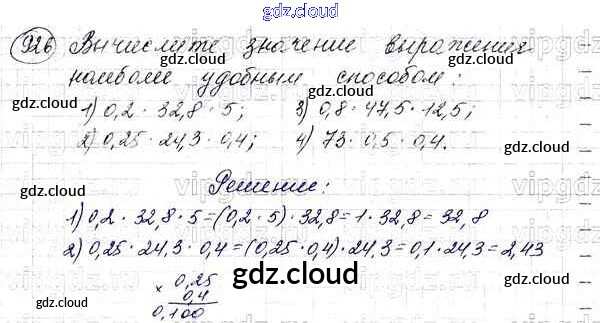 gdz.cloud
926 Вычислите значение выражения
наиболее удобным способом:
1) 0,2 · 32,8 · 5; 3) 0,8 · 47,5 · 12,5;
2) 0,25 · 24,3 · 0,4; 4) 73 · 0,5 · 0,4.
gdz.cloud
gdz.cloud
Решение:
1) 0,2 · 32,8 · 5 = (0,2 · 5) · 32,8 = 1 · 32,8 = 32,8
2) 0,25 · 24,3 · 0,4 = (0,25 · 0,4) · 24,3 = 0,1 · 24,3 = 2,43
× 0,25
0,4
0,100
gdz.cloud